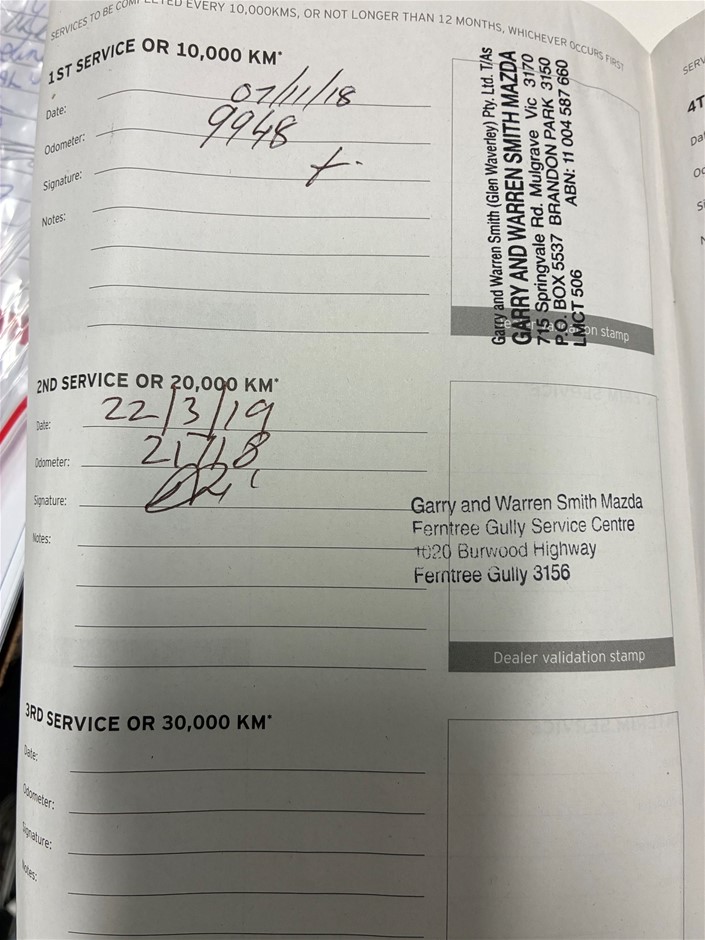 SERVICES TO BE COMPLETED EVERY 10,000KMS, OR NOT LONGER THAN 12 MONTHS, WHICHEVER OCCURS FIRST
1ST SERVICE OR 10,000 KM*
Date: 07/11/18
Odometer: 9948
Signature:
Notes:
Garry and Warren Smith (Glen Waverley) Pty. Ltd. T/As
GARRY AND WARREN SMITH MAZDA
715 Springvale Rd. Mulgrave Vic 3170
P.O. BOX 5537 BRANDON PARK 3150
LMCT 506 ABN: 11 004 587 660
stamp
2ND SERVICE OR 20,000 KM*
Date: 22/3/19
Odometer: 21718
Signature:
Notes:
Garry and Warren Smith Mazda
Ferntree Gully Service Centre
1020 Burwood Highway
Ferntree Gully 3156
Dealer validation stamp
3RD SERVICE OR 30,000 KM*
Date:
Odometer:
Signature:
Notes: